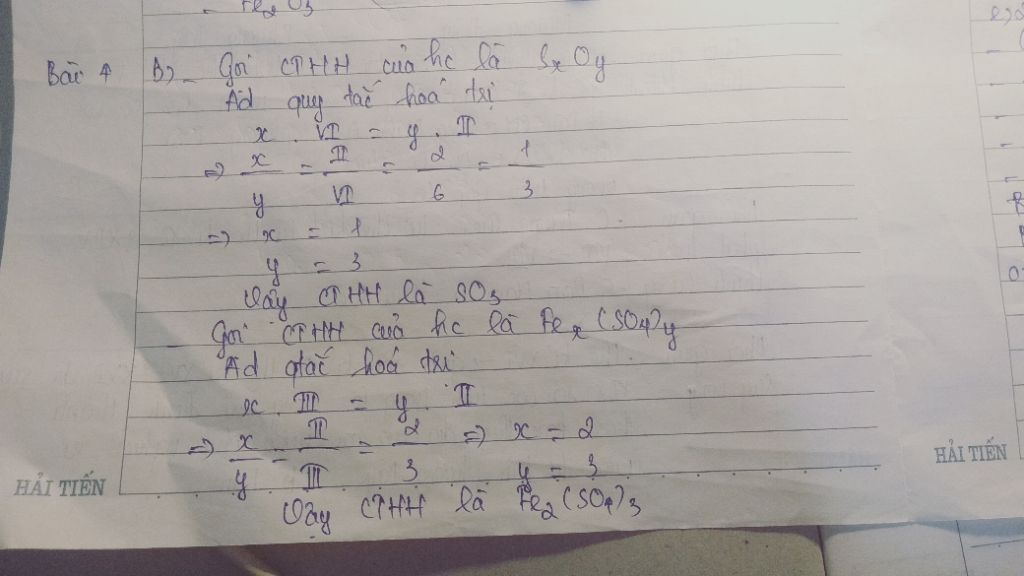 Fe₂O₃
Bài 4 B, - Gọi CTHH của hc là SxOy
Ad quy tắc hoá trị
x . VI = y . II
=> x/y = II/VI = 2/6 = 1/3
=> x = 1
y = 3
Vậy CTHH là SO₃
- Gọi CTHH của hc là Feₓ(SO₄)y
Ad qtắc hoá trị
x . III = y . II
=> x/y = II/III = 2/3 => x = 2
y = 3
Vậy CTHH là Fe₂(SO₄)₃
HẢI TIẾN
HẢI TIẾN